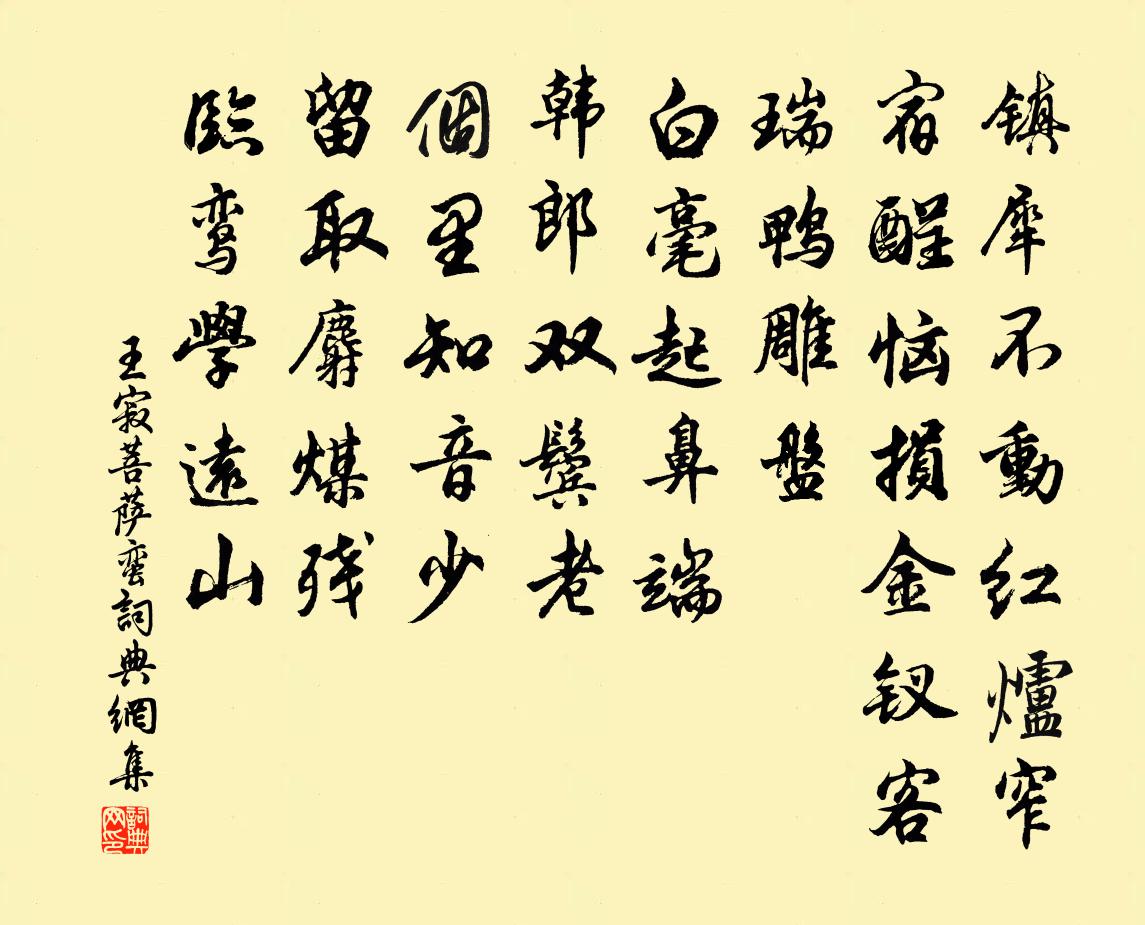 镇犀不動红爐窄
宿醒恼損金钗客
瑞鸭雕盤
白毫起鼻端
韩郎双鬓老
個里知音少
留取麝煤残
臨鸾學遠山
王寂菩萨蛮詞典網集
詞典網印